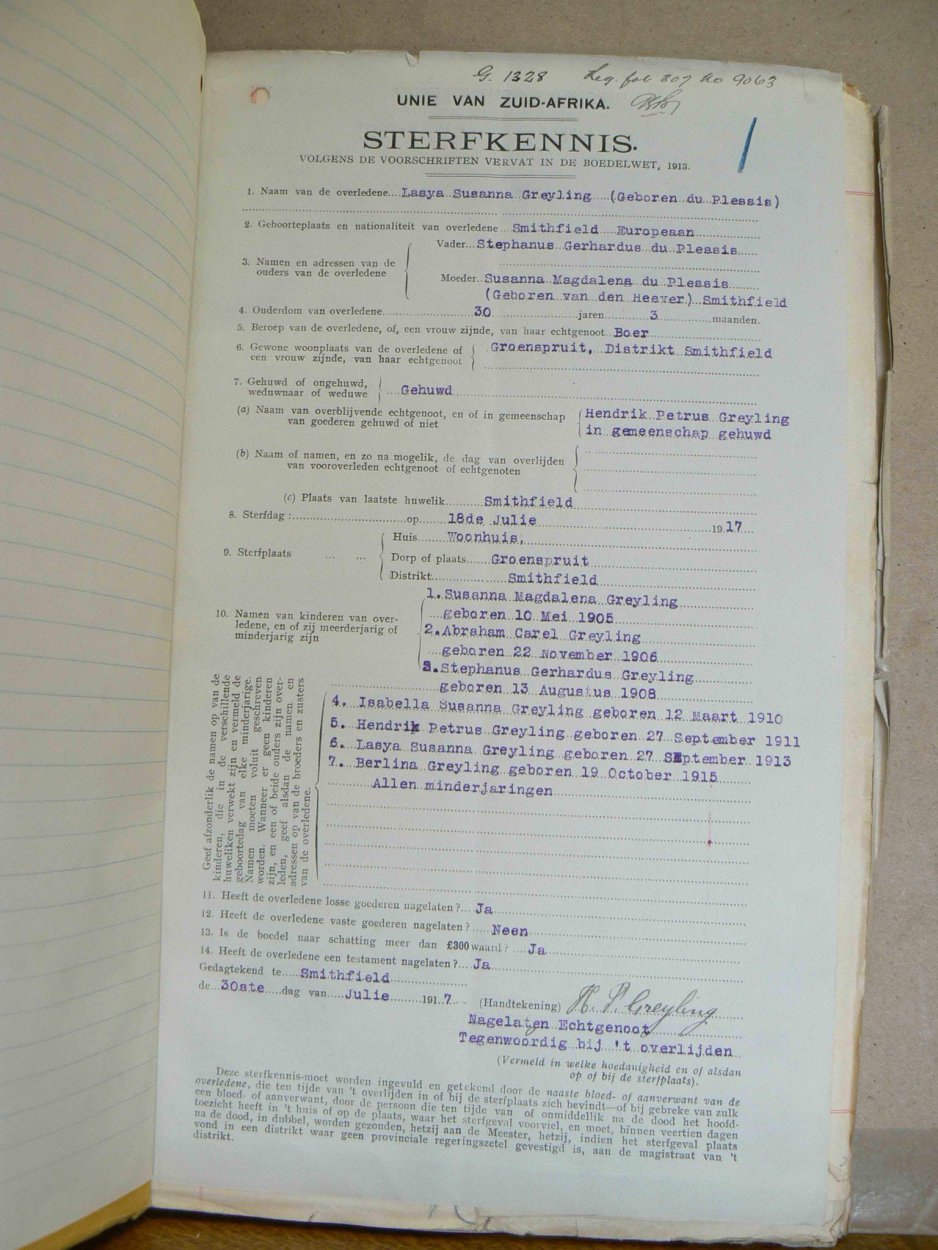 G. 1328 Leg. fol 307 No 9063
UNIE VAN ZUID-AFRIKA.
STERFKENNIS.
VOLGENS DE VOORSCHRIFTEN VERVAT IN DE BOEDELWET, 1913.
1. Naam van de overledene....Lasya Susanna Greyling.....(Geboren du Plessis)
2. Geboorteplaats en nationaliteit van overledene...Smithfield...Europeaan
3. Namen en adressen van de ouders van de overledene
Vader...Stephanus Gerhardus du Plessis
Moeder...Susanna Magdalena du Plessis
(Geboren van den Heever.) Smithfield
4. Ouderdom van overledene 30 jaren 3 maanden.
5. Beroep van de overledene, of, een vrouw zijnde, van haar echtgenoot Boer
6. Gewone woonplaats van de overledene of
een vrouw zijnde, van haar echtgenoot
Groenspruit, Distrikt Smithfield
7. Gehuwd of ongehuwd,
weduwnaar of weduwe
Gehuwd
(a) Naam van overblijvende echtgenoot, en of in gemeenschap
van goederen gehuwd of niet
Hendrik Petrus Greyling
in gemeenschap gehuwd
(b) Naam of namen, en zo na mogelik, de dag van overlijden
van vooroverleden echtgenoot of echtgenoten
(c) Plaats van laatste huwelik Smithfield
8. Sterfdag: op 18de Julie 1917
9. Sterfplaats ... ...
Huis Woonhuis,
Dorp of plaats Groenspruit
Distrikt Smithfield
10. Namen van kinderen van over-
ledene, en of zij meerderjarig of
minderjarig zijn
1. Susanna Magdalena Greyling
geboren 10 Mei 1905
2. Abraham Carel Greyling
geboren 22 November 1906
3. Stephanus Gerhardus Greyling
geboren 13 Augustus 1908
Geef afzonderlik de namen op van de
kinderen, die in de verschillende
huweliken verwekt zijn en vermeld de
geboortedag van elke minderjarige.
Namen moeten voluit geschreven
worden. Wanneer er geen kinderen
zijn, en een of beide ouders zijn over-
leden, geef alsdan de namen en
adressen op van de broeders en zusters
van de overledene.
4. Isabella Susanna Greyling geboren 12 Maart 1910
5. Hendrik Petrus Greyling geboren 27 September 1911
6. Lasya Susanna Greyling geboren 27 September 1913
7. Berlina Greyling geboren 19 October 1915
Allen minderjaringen
11. Heeft de overledene losse goederen nagelaten?...Ja
12. Heeft de overledene vaste goederen nagelaten?...Neen
13. Is de boedel naar schatting meer dan £300 waard?...Ja
14. Heeft de overledene een testament nagelaten?...Ja
Gedagtekend te Smithfield
de 30ste dag van Julie 1917.
(Handtekening) H. P. Greyling
Nagelaten Echtgenoot
Tegenwoordig bij 't overlijden
(Vermeld in welke hoedanigheid en of alsdan
op of bij de sterfplaats).
Deze sterfkennis-moet worden ingevuld en getekend door de naaste bloed- of aanverwant van de
overledene, die ten tijde van 't overlijden in of bij de sterfplaats zich bevindt—of bij gebreke van zulk
een bloed- of aanverwant, door de persoon die ten tijde van of onmiddellik na de dood het hoofd-
toezicht heeft in 't huis of op de plaats, waar het sterfgeval voorviel, en moet, binnen veertien dagen
na de dood, in dubbel, worden gezonden, hetzij aan de Meester, hetzij, indien het sterfgeval plaats
vond in een distrikt waar geen provinciale regeringszetel gevestigd is, aan de magistraat van 't
distrikt.